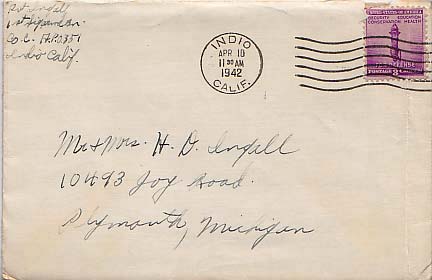 Pvt Ingall
1st Signal Bn
Co C. A.P.O 351
Indio Calif.
INDIO
APR 10
11 30 AM
1942
CALIF.
UNITED STATES OF AMERICA
SECURITY EDUCATION
CONSERVATION HEALTH
DEFENSE
POSTAGE 3
Mr & Mrs. H. D. Ingall
10493 Joy Road.
Plymouth, Michigan